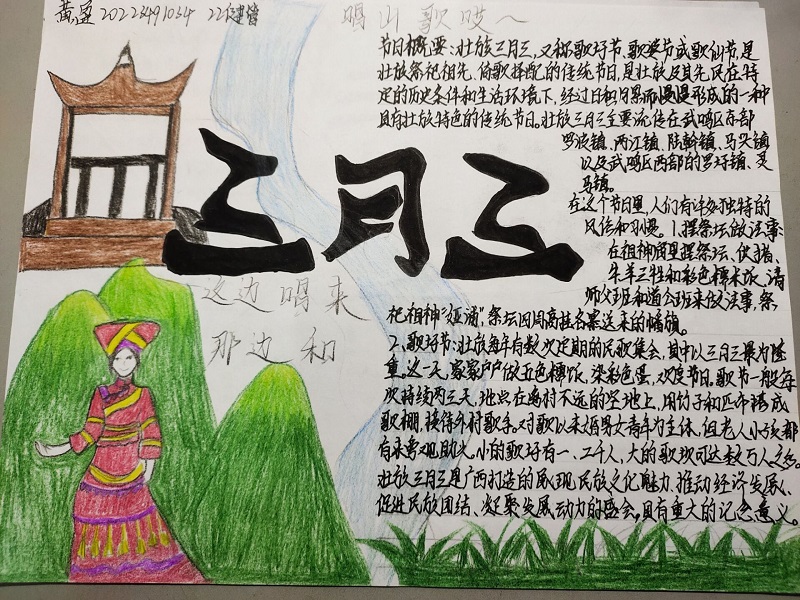 黄盈 20223491034 22健管
唱山歌哎~
三月三
这边唱来
那边和
节日概要:壮族三月三,又称歌圩节、歌婆节或歌仙节,是
壮族祭祀祖先、倚歌择配的传统节日,是壮族及其先民在特
定的历史条件和生活环境下,经过日积月累而慢慢形成的一种
具有壮族特色的传统节日。壮族三月三主要流传在武鸣区东部
罗波镇、两江镇、陆斡镇、马头镇
以及武鸣区西部的罗圩镇、灵
马镇。
在这个节日里,人们有许多独特的
风俗和习惯。1.摆祭坛做法事:
在祖神庙里摆祭坛、供猪、
牛羊三牲和彩色糯米饭,请
师公班和道公班来做法事,祭
祀祖神“娅浦”,祭坛四周高挂各寨送来的幡旗。
2、歌圩节:壮族每年有数次定期的民歌集会,其中以三月三最为隆
重。这一天,家家户户做五色糯饭,染彩色蛋,欢度节日。歌节一般每
次持续两三天,地点在离村不远的空地上,用竹子和匹布搭成
歌棚,接待外村歌手。对歌以未婚男女青年为主体,但老人小孩都
有来旁观助人。小的歌圩有一、二千人,大的歌圩可达数万人之多。
壮族三月三是广西打造的展现民族文化魅力、推动经济发展、
促进民族团结、凝聚发展动力的盛会,具有重大的记念意义。